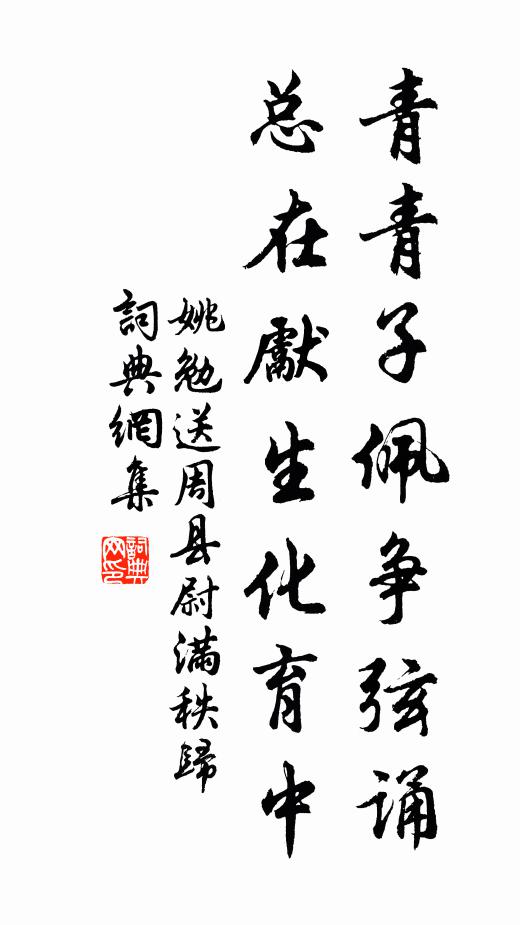 青青子佩争弦诵
总在献生化育中
姚勉送周县尉满秩歸
詞典網集
詞典网印